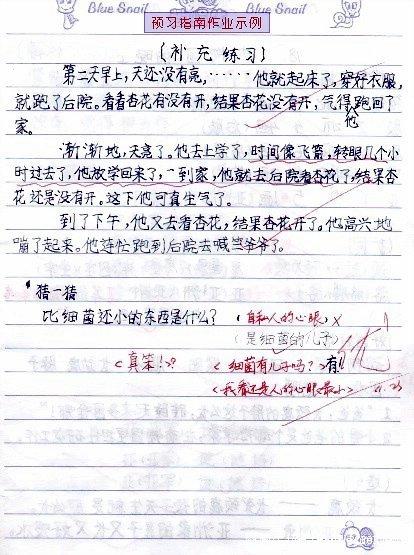 Blue Snail Blue Snail
预习指南作业示例
(补充练习)
第二天早上,天还没有亮,……他就起床了,穿好衣服,
就跑了后院。看看杏花有没有开,结果杏花没有开,气得跑回了
家。 他
渐渐地,天亮了。他去上学了,时间像飞箭,转眼几个小
时过去了,他放学回来了,一到家,他就去后院看杏花了,结果杏
花还是没有开。这下他可真生气了。
到了下午,他又去看杏花,结果杏花开了。他高兴地
蹦了起来。他连忙跑到后院去喊爷爷了。
猜一猜
比细菌还小的东西是什么? (自私人的心眼)
(是细菌的儿子)
<真笨!>? <细菌有儿子吗?>有!! 优
<我看还是人的心眼最小> 11.23